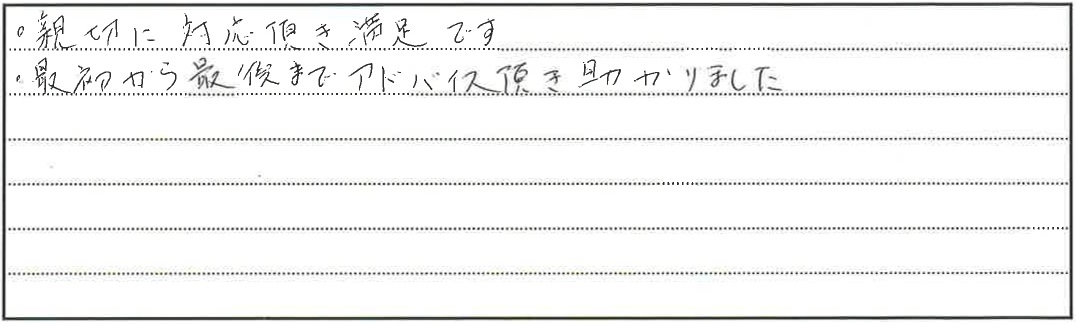 ・親切に対応頂き満足です
・最初から最後までアドバイス頂き助かりました